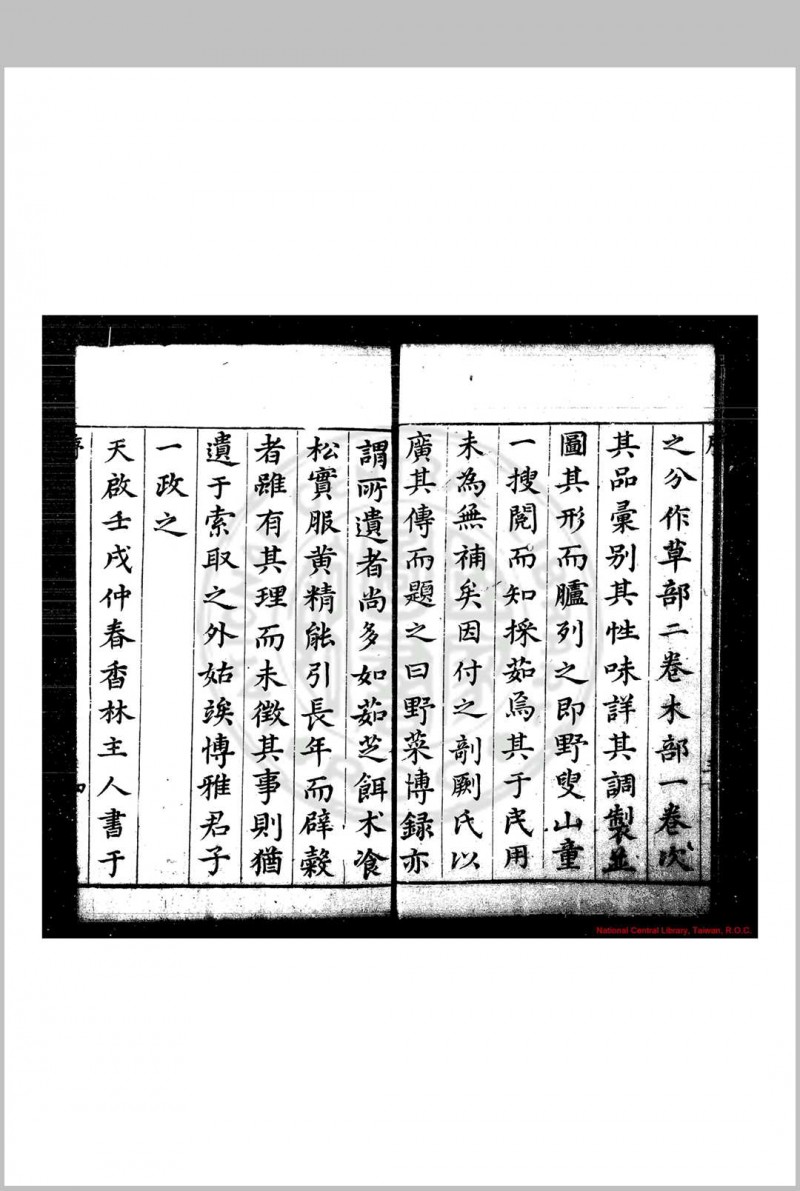 之分作草部二卷木部一卷次
其品彙別其性味詳其調製並
圖其形而臚列之即野叟山童
一搜閱而知採茹焉其于民用
未為無補矣因付之剞劂氏以
廣其傳而題之曰野菜博録亦
謂所遺者尚多如茹芝餌术飡
松實服黄精能引長年而辟榖
者雖有其理而未徵其事則猶
遺于索取之外姑竢博雅君子
一政之
天啟壬戌仲春香林主人書于
National Central Library, Taiwan, R.O.C.